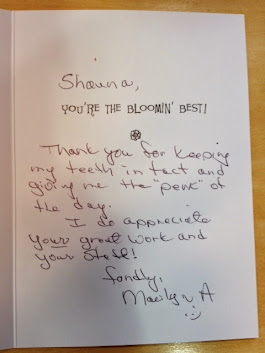 Shawna,
YOU'RE THE BLOOMIN' BEST!
Thank you for keeping
my teeth in tact and
giving me the "perk" of
the day.
I do appreciate
your great work and
your staff!
fondly,
Marilyn A